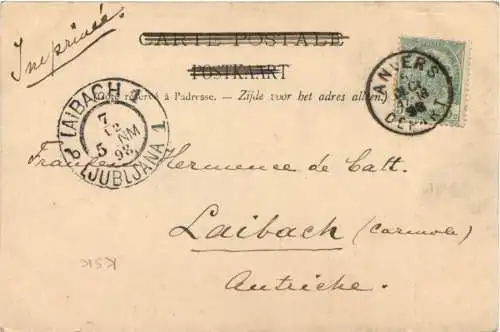 Imprimée.
CARTE POSTALE
POSTKAART
(Côté réservé à l'adresse. — Zijde voor het adres alleen.)
ANVERS
DEPART
LAIBACH 1
7
12
5 NM
98
LJUBLJANA 1
Hermence de Catt.
Laibach (Carniole)
Autriche.
KSK